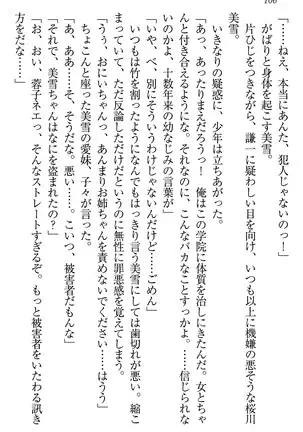 106
「……ねえ、本当にあんた、犯人じゃないのっ！」
がばりと身体を起こす美雪。
片ひじをつきながら、謙一に疑わしい目を向け、いつも以上に機嫌の悪そうな桜川
美雪。
いきなりの疑惑に、少年は立ちあがった。
「あ、あったりまえだろうっ！　俺はこの学院に体質を治しにきたんだ。女とちゃ
んと付き合えるようにな。それなのに、こんなバカなことすっかよ。……信じられな
いのか、十数年来の幼なじみの言葉が」
「いや、べ、別にそういうわけじゃないんだけど……ごめん」
いつもは竹を割ったようになんでもはっきり言う美雪にしては歯切れが悪い。縮こ
まった様子に、ただ反論しただけだというのに無性に罪悪感を覚えてしまう。
「うぅ、おにいちゃん、あんまりお姉ちゃんを責めないでください……はうう」
ちょこんと座った美雪の愛妹、子々が言った。
「あ、ああ……そ、そうだな。悪い……。こいつ、被害者だもんな」
「それで、美雪ちゃんはなにを盗まれたの？」
「お、おい、蓉子ネエっ、そんなストレートすぎるぞ。もっと被害者をいたわる訊き
方をだな……」